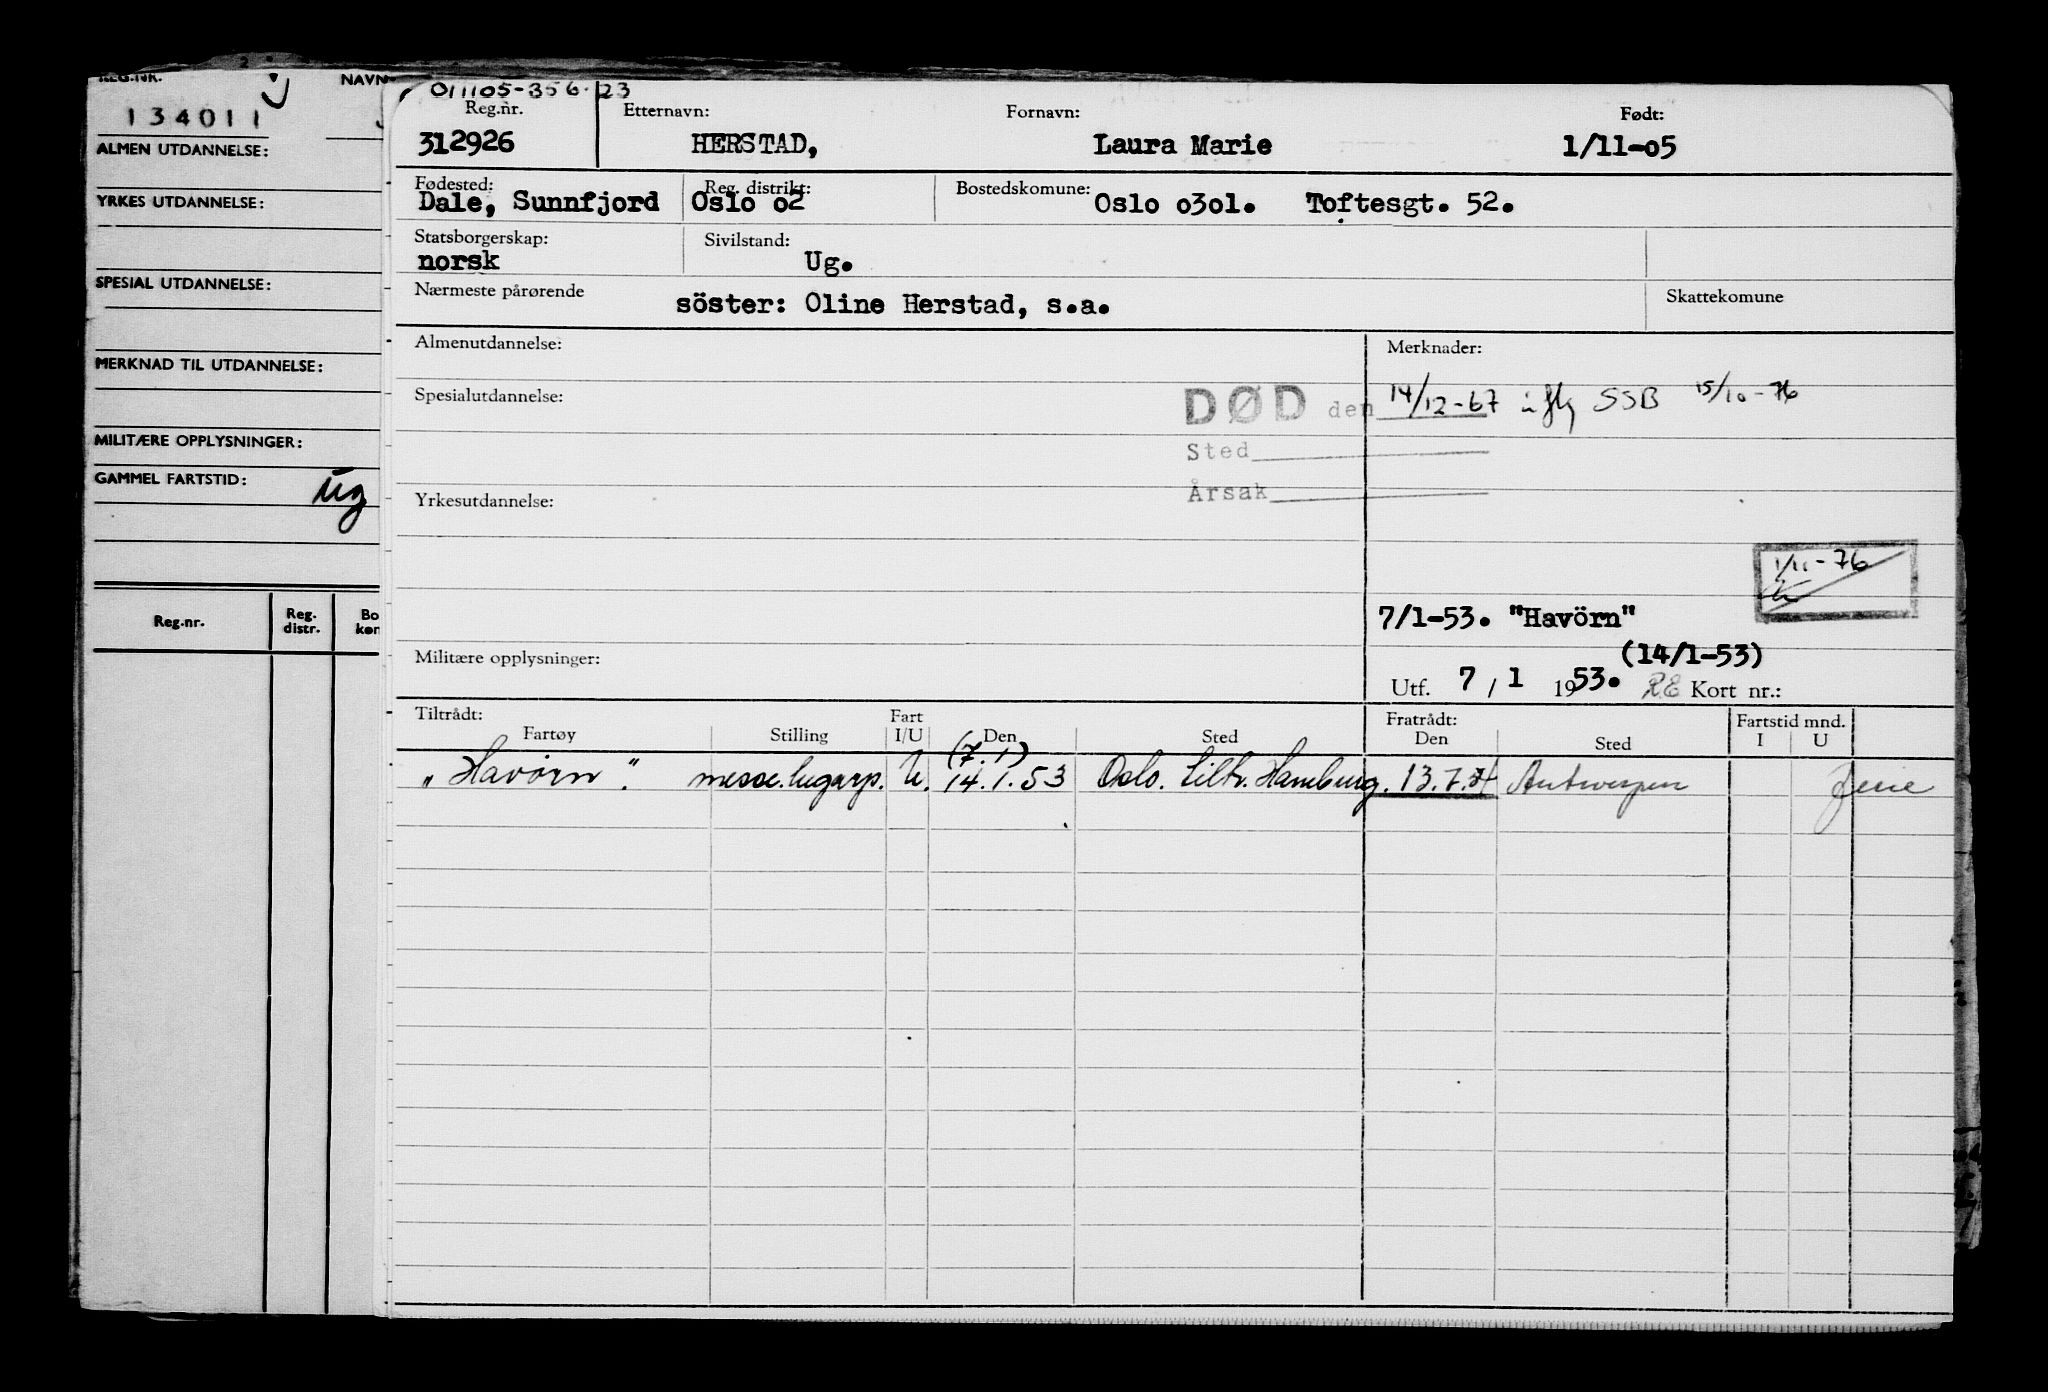 REG.NR. NAVN
134011
ALMEN UTDANNELSE:
YRKES UTDANNELSE:
SPESIAL UTDANNELSE:
MERKNAD TIL UTDANNELSE:
MILITÆRE OPPLYSNINGER:
GAMMEL FARTSTID: ug
Reg.nr. Reg. distr. Bo kom
011105-356 23
Reg.nr. Etternavn: Fornavn: Født:
312926 HERSTAD, Laura Marie 1/11-05
Fødested: Reg. distrikt: Bostedskomune:
Dale, Sunnfjord Oslo o2 Oslo o3o1. Toftesgt. 52.
Statsborgerskap: Sivilstand:
norsk Ug.
Nærmeste pårørende söster: Oline Herstad, s.a. Skattekomune
Almenutdannelse: Merknader:
Spesialutdannelse: DØD den 14/12-67 iflg SSB 15/10-76
Sted
Årsak
Yrkesutdannelse:
1/11-76
7/1-53. "Havörn"
(14/1-53)
Militære opplysninger:
Utf. 7/1 1953. RE Kort nr.:
Tiltrådt: Fart Fratrådt: Fartstid mnd.
Fartøy Stilling I/U Den Sted Den Sted I U
(7.1)
"Havörn". messe.lugarp. U. 14.1.53 Oslo. Tiltr. Hamburg. 13.7.54 Antwerpen ferie